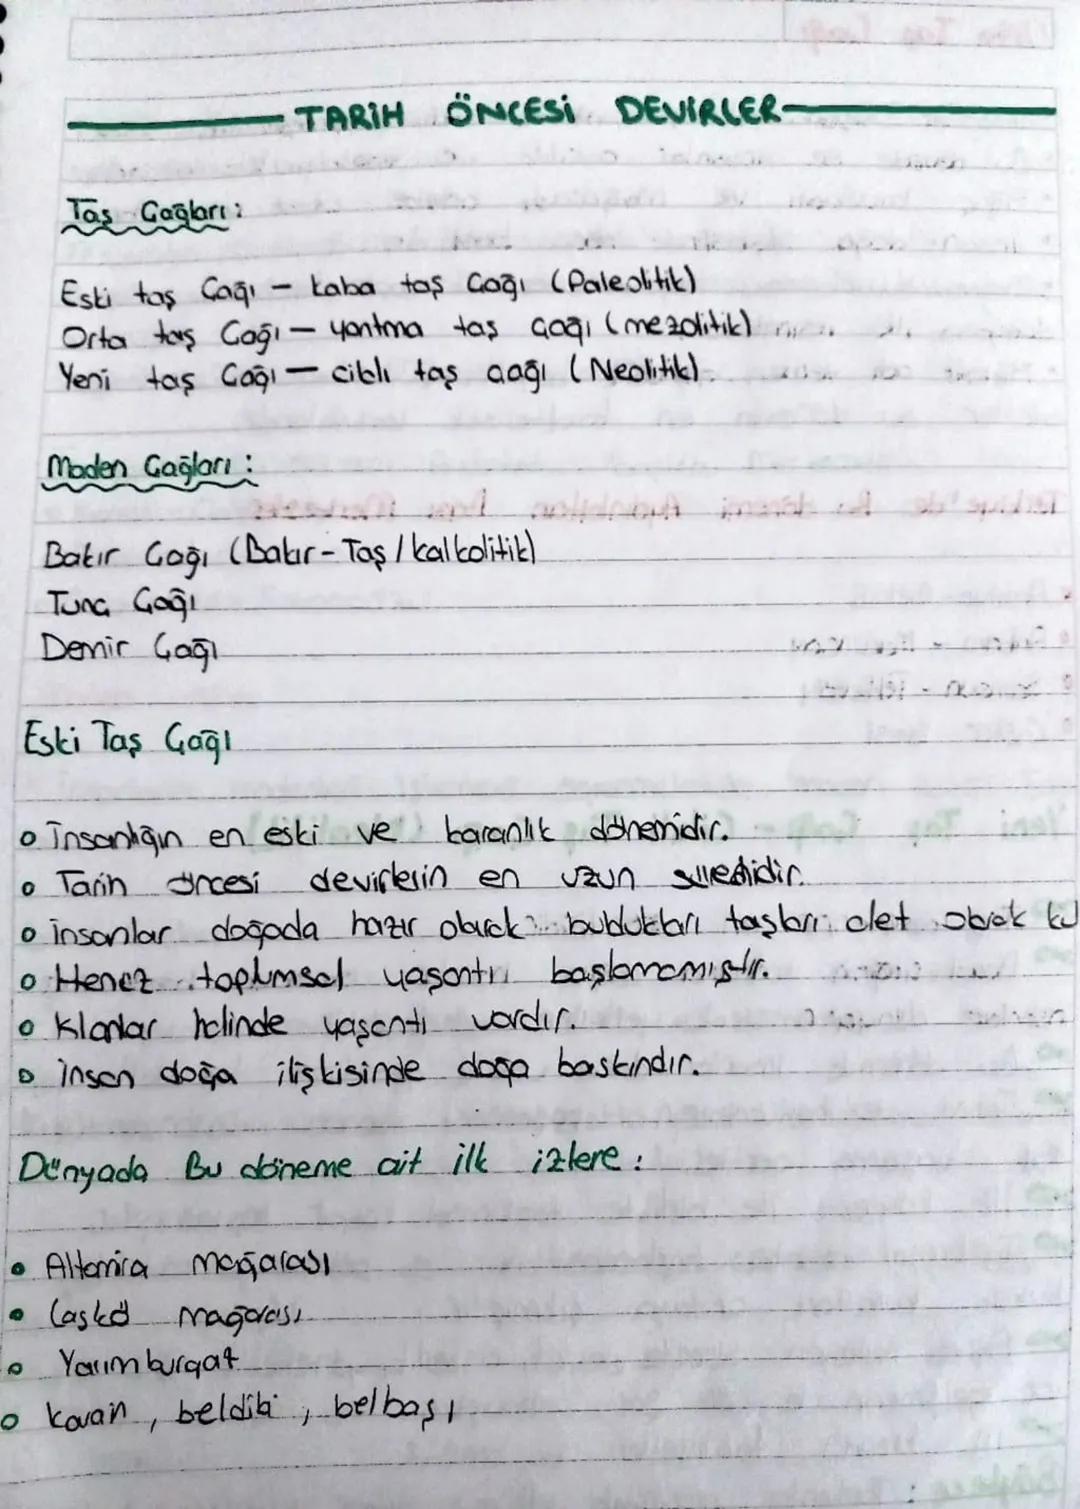 TARİH ÖNCESİ DEVİRLER
Taş Çağları :
Eski taş Çağı - kaba taş Çağı (Paleolitik)
Orta taş Çağı - yontma taş çağı (mezolitik)
Yeni taş Çağı - cilalı taş çağı (Neolitik)
Maden Çağları :
Bakır Çağı (Bakır - Taş / kalkolitik)
Tunç Çağı
Demir Çağı
Eski Taş Çağı
İnsanlığın en eski ve karanlık dönemidir.
Tarih öncesi devirlerin en uzun süresidir.
insanlar doğada hazır olarak buldukları taşları alet olarak
Henez toplumsal yaşantı başlamamıştır.
Klanlar halinde yaşantı vardır.
insan doğa ilişkisinde doğa baskındır.
Dünyada Bu döneme ait ilk izlere :
Altamira mağarası
Laskö mağarası
Yarımburgat
kovain , beldibi , belbaşı